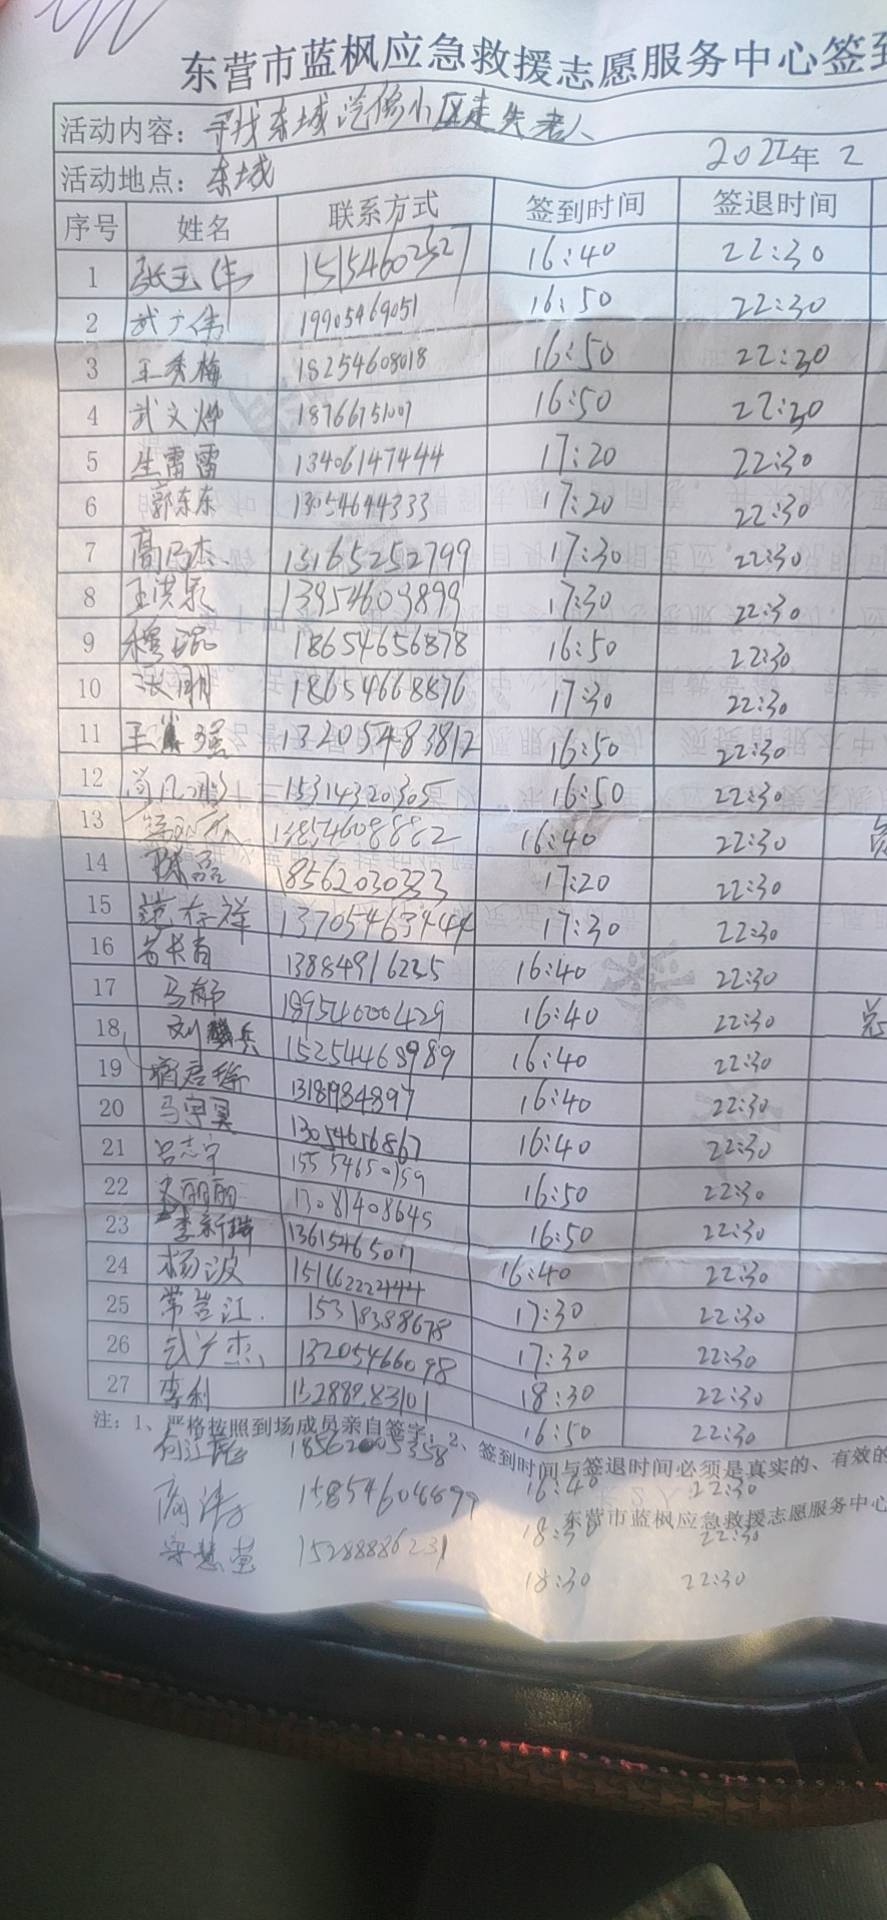 东营市蓝枫应急救援志愿服务中心签到
活动内容：寻找东城 小区走失老人
活动地点：东城 2022年 2
序号 姓名 联系方式 签到时间 签退时间
1 张玉伟 15154602527 16:40 22:30
2 武广伟 19905469051 16:50 22:30
3 王秀梅 18254608018 16:50 22:30
4 武文烨 18766751007 16:50 22:30
5 生雷雷 13406147444 17:20 22:30
6 郭东东 13054644333 17:20 22:30
7 高乃杰 13165252799 17:30 22:30
8 王洪泉 13954609899 17:30 22:30
9 穆琨 18654656878 16:50 22:30
10 18654668876 17:30 22:30
11 王 强 13205483812 16:50 22:30
12 15314320305 16:50 22:30
13 13854608882 16:40 22:30
14 陈磊 18562030333 17:20 22:30
15 范存祥 13705463444 17:30 22:30
16 长青 13884916235 16:40 22:30
17 马郡 18954600429 16:40 22:30
18 刘 兵 15254469989 16:40 22:30
19 君瑞 13189984897 16:40 22:30
20 马宇昊 13054656867 16:40 22:30
21 吕志宇 15554650159 16:50 22:30
22 丽丽 13081408645 16:50 22:30
23 李新瑞 13615465017 16:40 22:30
24 杨波 15166222444 17:30 22:30
25 常岩江 15318388678 17:30 22:30
26 武广杰 13205466098 18:30 22:30
27 李利 15288983101 16:50 22:30
注：1、严格按照到场成员亲自签字；2、签到时间与签退时间必须是真实的、有效的
何江 18562005358 16:40 22:30
东营市蓝枫应急救援志愿服务中心
商涛 15854604899 18:30 22:30
慧莹 15288886231 18:30 22:30